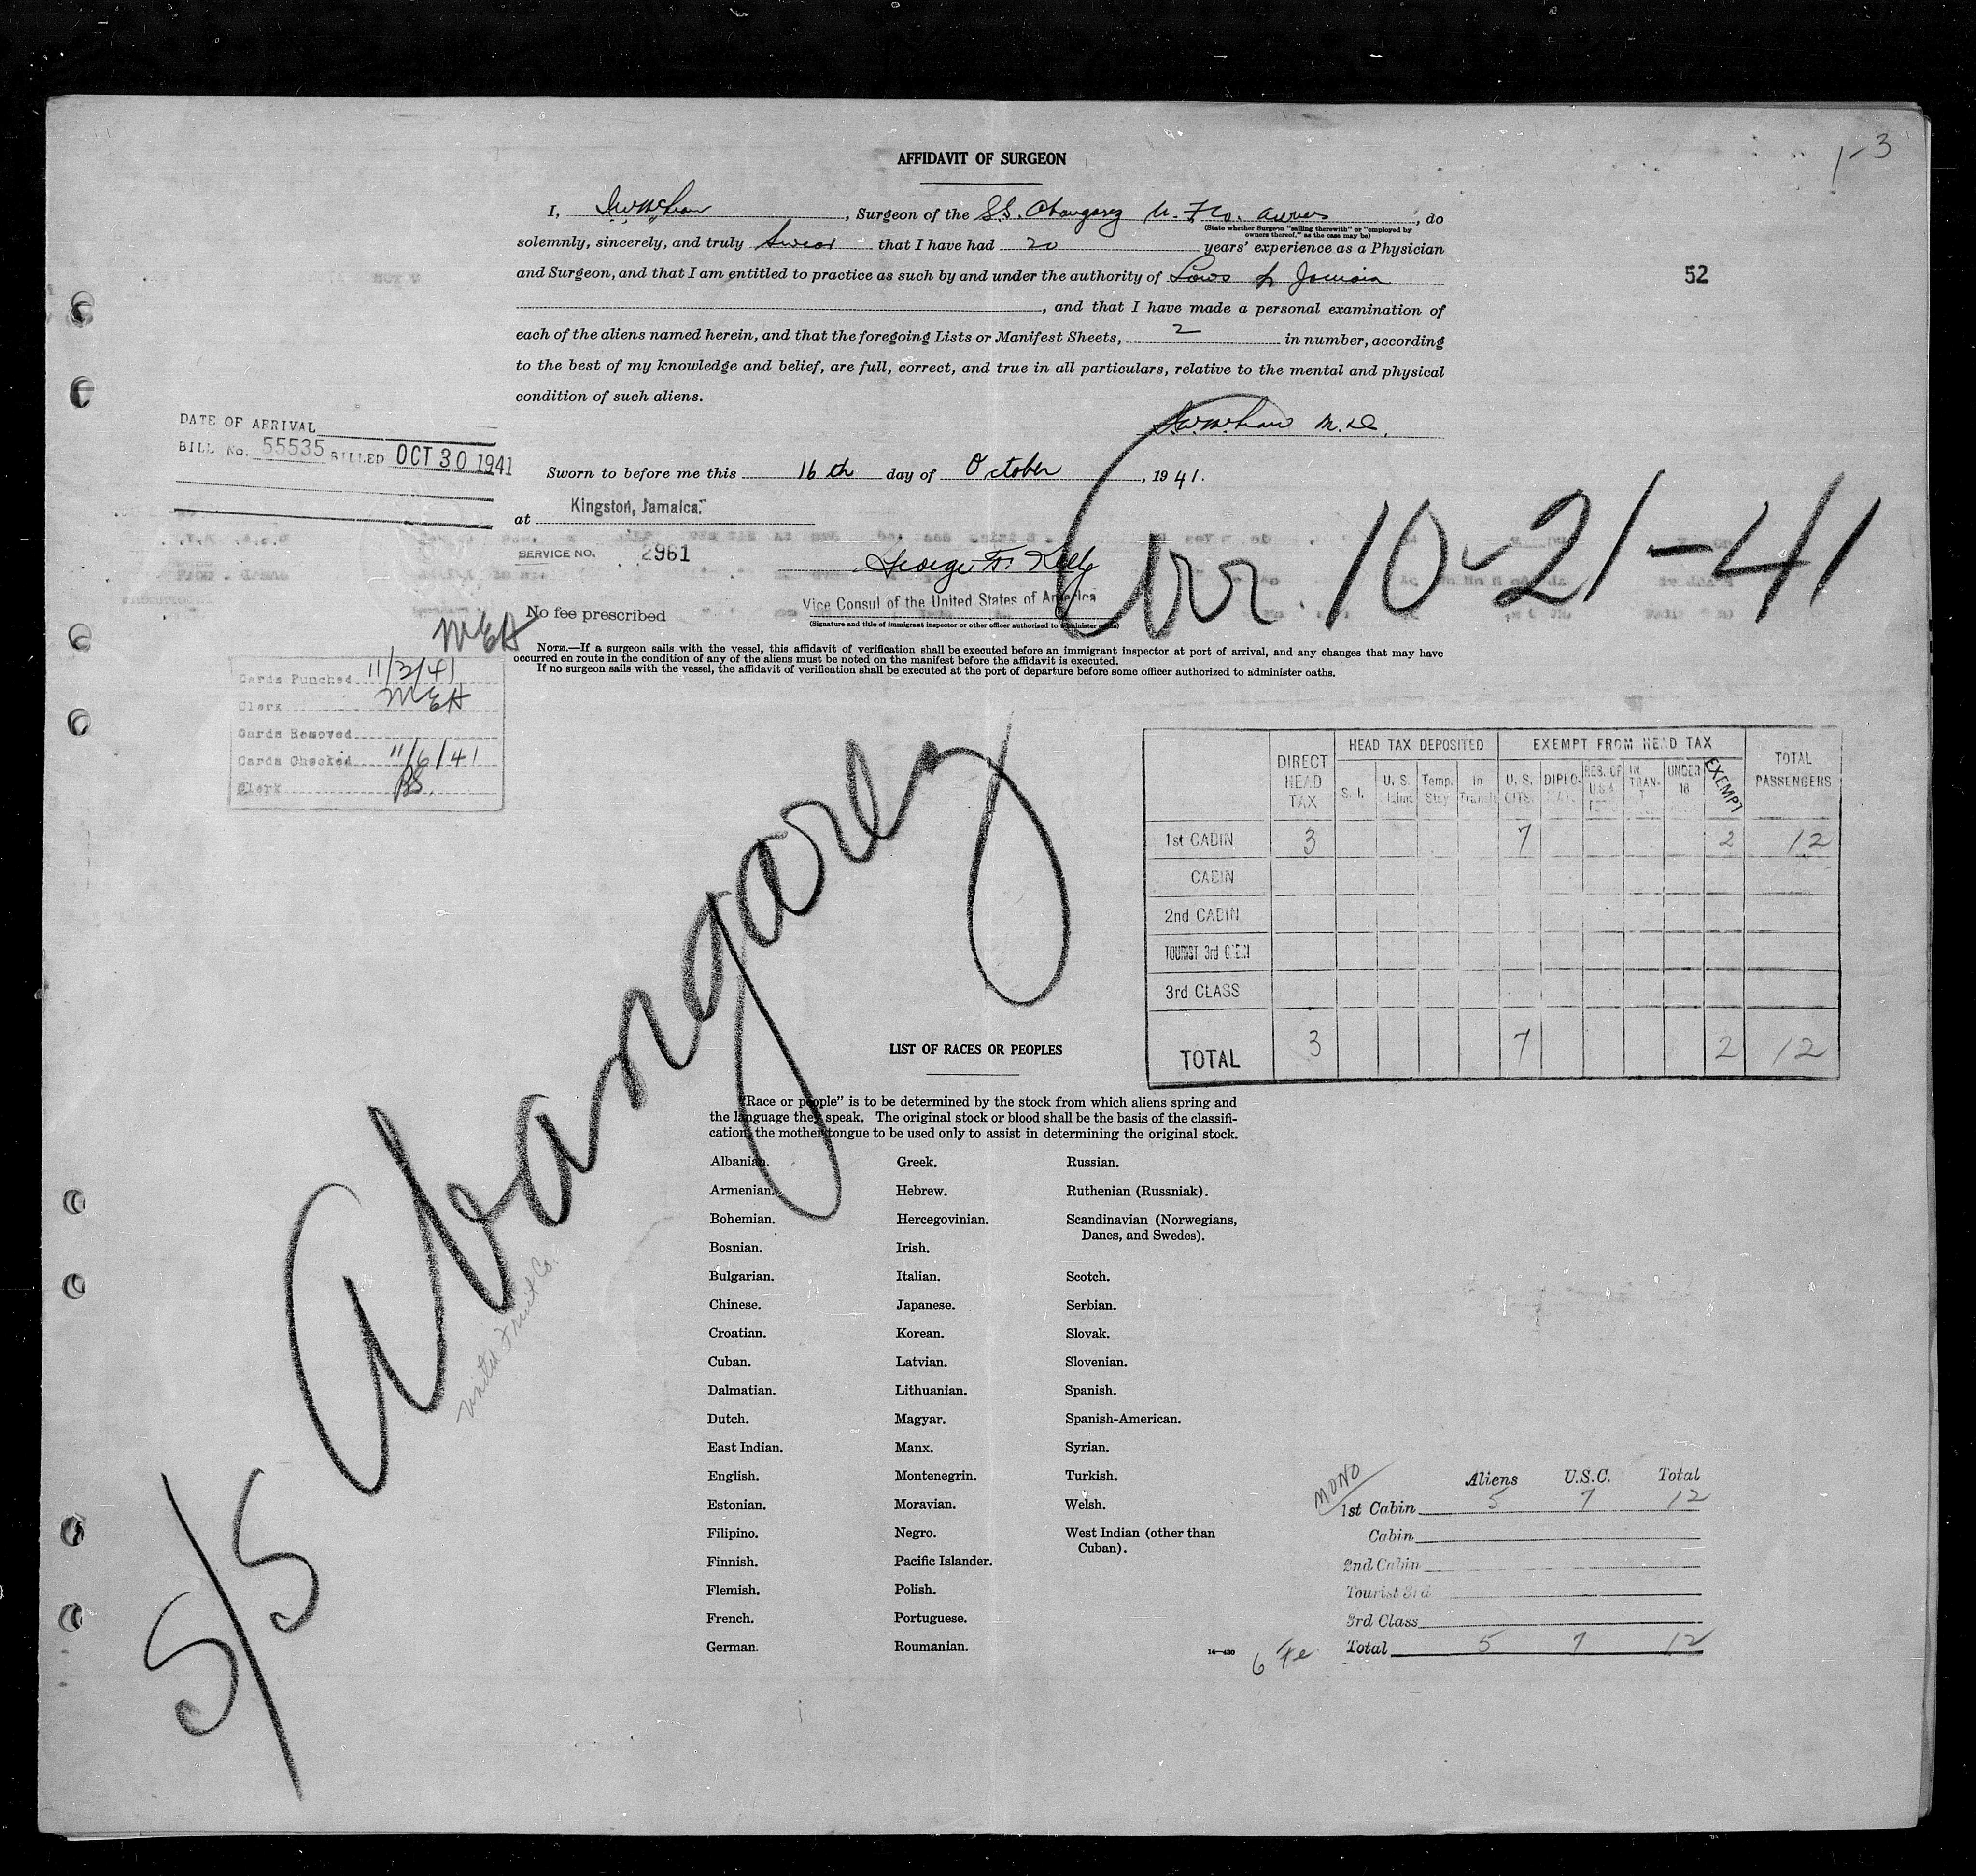 1-3
AFFIDAVIT OF SURGEON
I, , Surgeon of the S.S. Abangarez U. F. Co. , do
(State whether Surgeon "sailing therewith" or "employed by
owners thereof," as the case may be)
solemnly, sincerely, and truly Swear that I have had 20 years' experience as a Physician
and Surgeon, and that I am entitled to practice as such by and under the authority of Laws of Jamaica
52
, and that I have made a personal examination of
each of the aliens named herein, and that the foregoing Lists or Manifest Sheets, 2 in number, according
to the best of my knowledge and belief, are full, correct, and true in all particulars, relative to the mental and physical
condition of such aliens.
M.D.
DATE OF ARRIVAL
BILL No. 55535 BILLED OCT 30 1941
Sworn to before me this 16th day of October, 1941.
at Kingston, Jamaica.
Arr. 10-21-41
SERVICE NO. 2961
George F. Kelly
No fee prescribed
Vice Consul of the United States of America
(Signature and title of immigrant inspector or other officer authorized to administer oaths)
MEH
NOTE.—If a surgeon sails with the vessel, this affidavit of verification shall be executed before an immigrant inspector at port of arrival, and any changes that may have
occurred en route in the condition of any of the aliens must be noted on the manifest before the affidavit is executed.
If no surgeon sails with the vessel, the affidavit of verification shall be executed at the port of departure before some officer authorized to administer oaths.
Cards Punched 11/3/41
Clerk MEH
Cards Removed
Cards Checked 11/6/41
Clerk BS.
DIRECT HEAD TAX HEAD TAX DEPOSITED EXEMPT FROM HEAD TAX TOTAL PASSENGERS
S. I. U. S. Claims Temp. Stay In Transit U. S. CITS. DIPLO- RES. OF U.S.A. IN TRAN- UNDER 16 EXEMPT
1st CABIN 3 7 2 12
CABIN
2nd CABIN
TOURIST 3rd CABIN
3rd CLASS
TOTAL 3 7 2 12
S/S Abangarez
United Fruit Co.
LIST OF RACES OR PEOPLES
"Race or people" is to be determined by the stock from which aliens spring and
the language they speak. The original stock or blood shall be the basis of the classifi-
cation, the mother tongue to be used only to assist in determining the original stock.
Albanian.
Armenian.
Bohemian.
Bosnian.
Bulgarian.
Chinese.
Croatian.
Cuban.
Dalmatian.
Dutch.
East Indian.
English.
Estonian.
Filipino.
Finnish.
Flemish.
French.
German.
Greek.
Hebrew.
Hercegovinian.
Irish.
Italian.
Japanese.
Korean.
Latvian.
Lithuanian.
Magyar.
Manx.
Montenegrin.
Moravian.
Negro.
Pacific Islander.
Polish.
Portuguese.
Roumanian.
Russian.
Ruthenian (Russniak).
Scandinavian (Norwegians,
Danes, and Swedes).
Scotch.
Serbian.
Slovak.
Slovenian.
Spanish.
Spanish-American.
Syrian.
Turkish.
Welsh.
West Indian (other than
Cuban).
14-430
MONO
Aliens U.S.C. Total
1st Cabin 5 7 12
Cabin
2nd Cabin
Tourist 3rd
3rd Class
Total 5 7 12